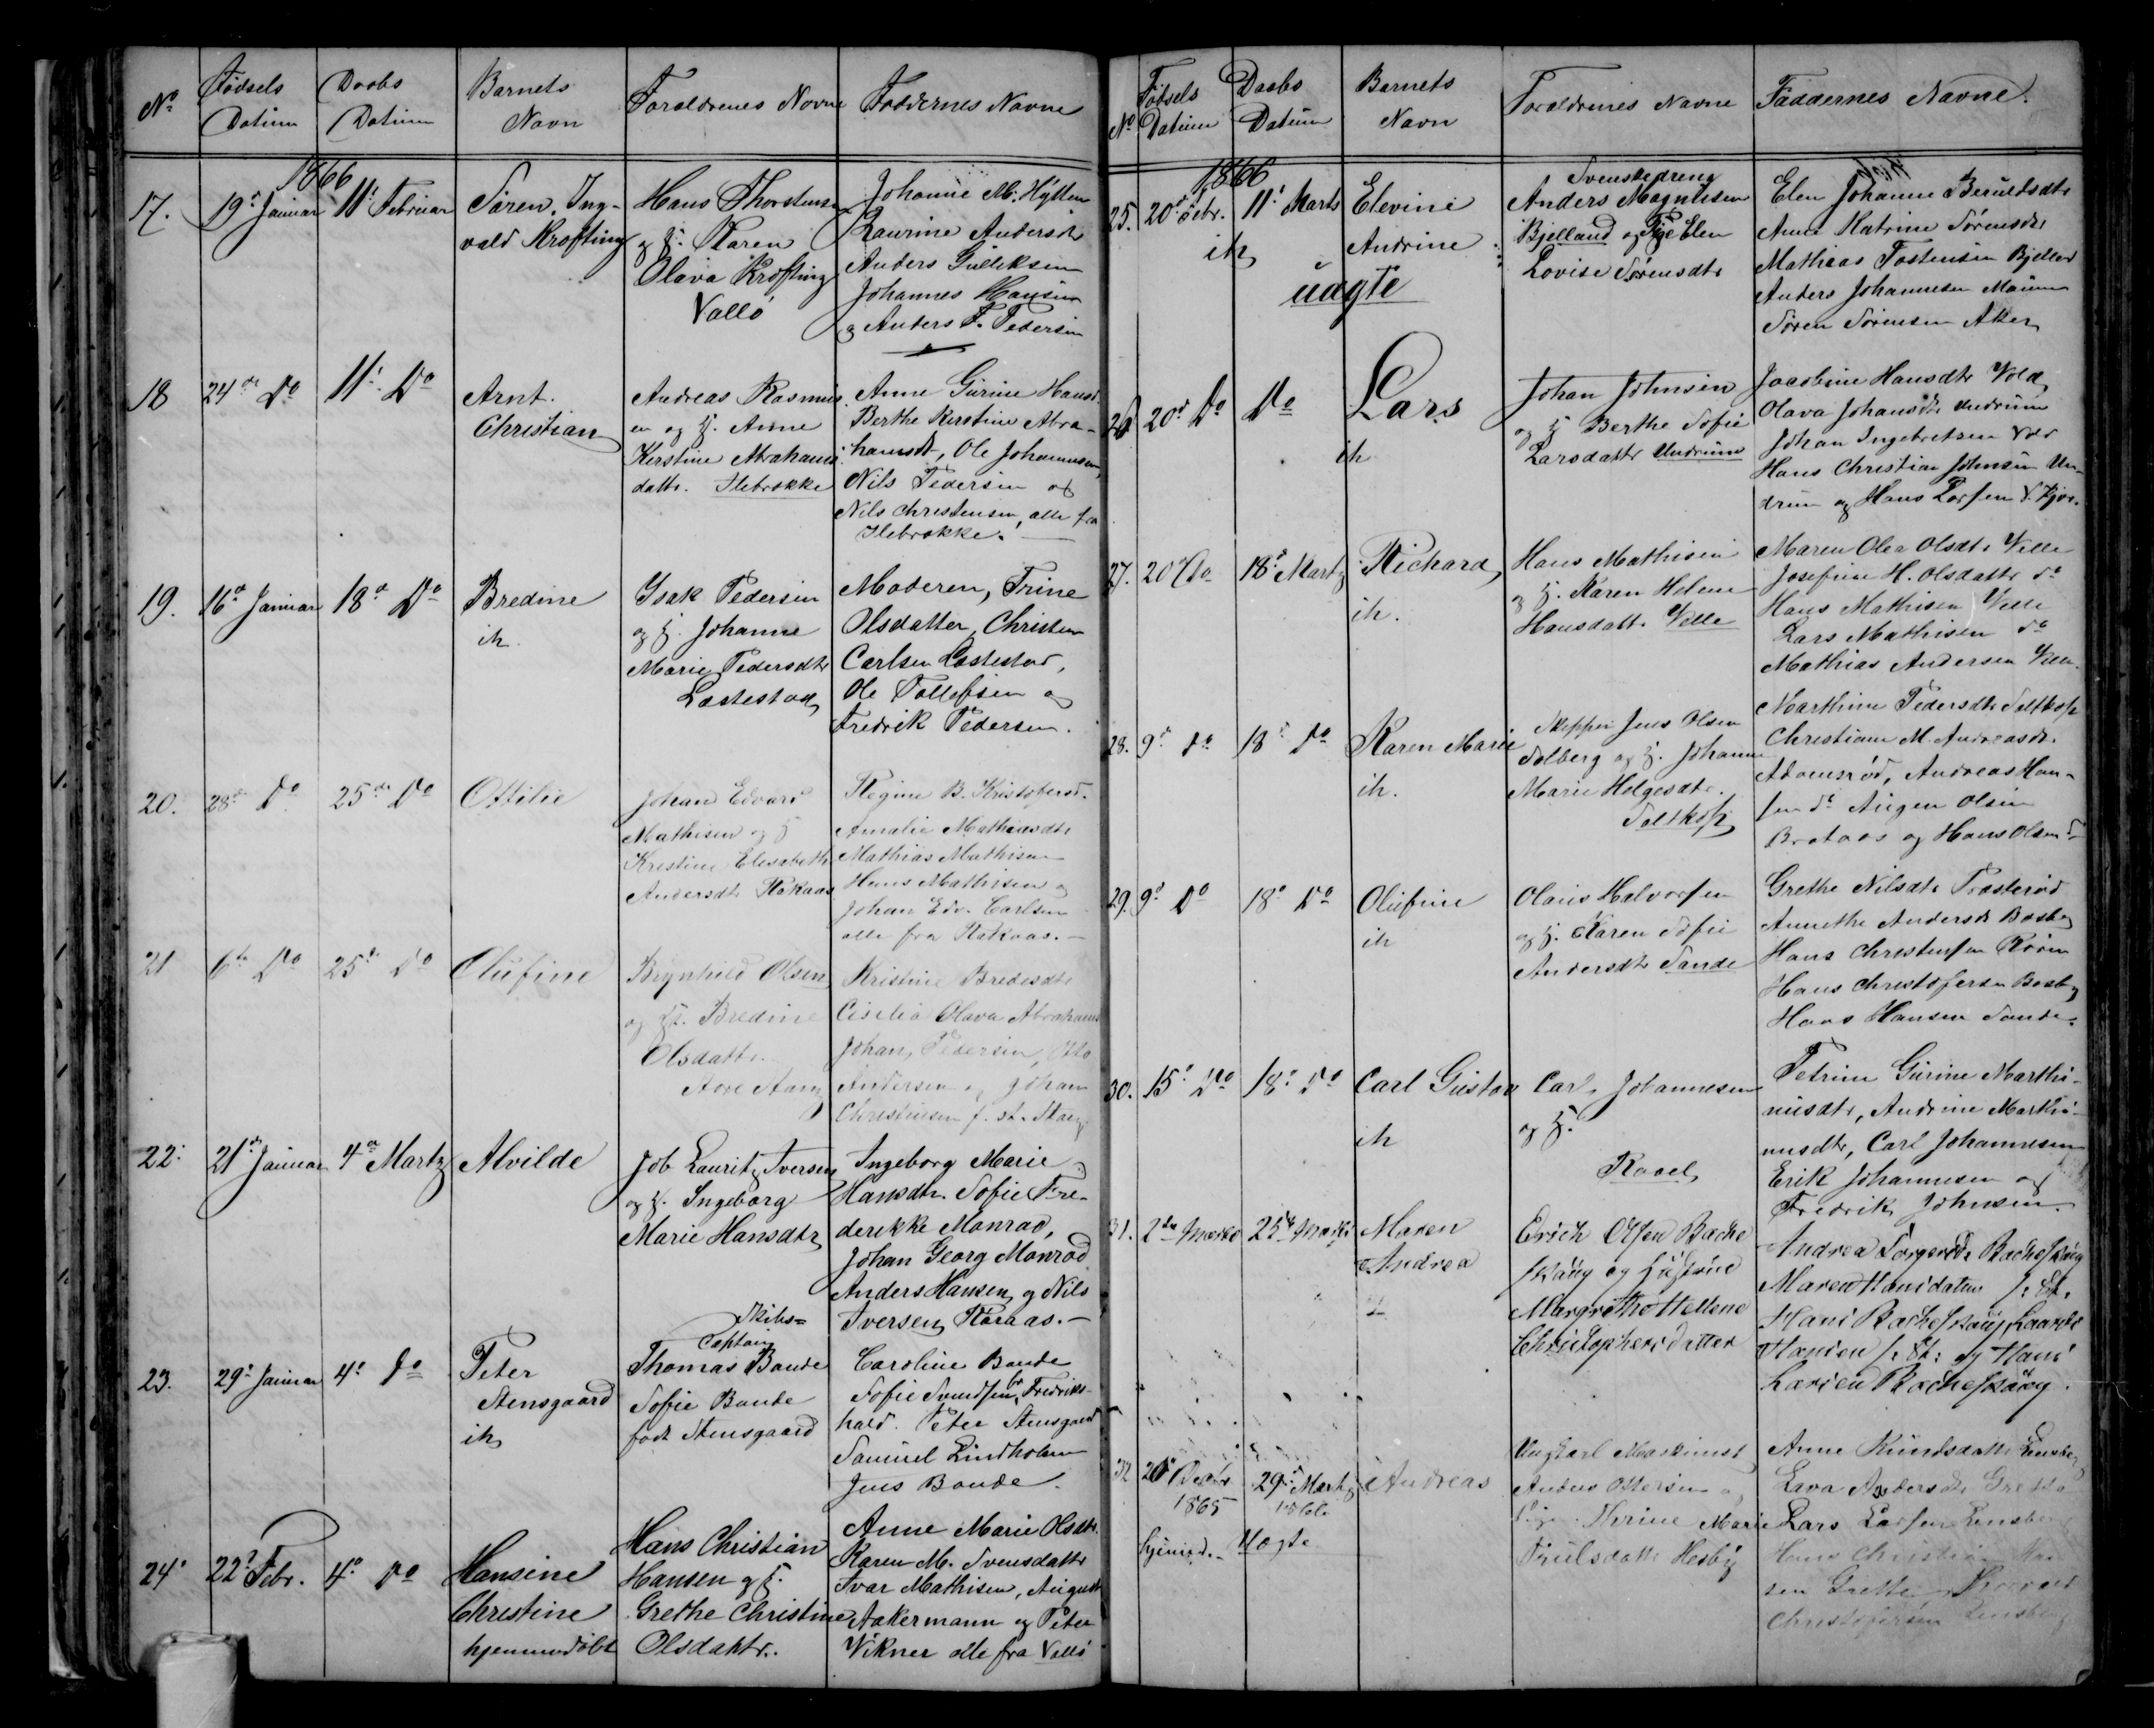 No Fødsels Datum Daabs Datum Barnets Navn Forældrenes Navne Faddernes Navne
1866
17. 19de Januar 11te Februar
Søren Ing-
vald Krofting
Hans Thorstensen
og H. Karen
Olava Krofting
Vallö
Johanne M. Hytten
Laurine Andersdtr
Anders Gulliksen
Johannes Hansen
og Anders F. Pedersen
18 24de Do 11te Do
Arnt.
Christian
Andreas Rasmus
en og H. Anne
Kerstine Abrahams
datter. Ilebrække
Anne Gurine Hansd.
Berthe Kerstine Abra-
hamsdt, Ole Johannesen,
Nils Pedersen og
Nils Christensen, alle fra
Ilebrække.
19. 16de Januar 18de Do
Bredine
ih.
Isak Pedersen
og H. Johanne
Marie Pedersdtr
Lastestad
Moderen, Trine
Olsdatter, Christen
Carlsen Lastestad,
Ole Tollefsen og
Fredrik Pedersen.
20. 28de Do 25de Do
Ottilie
Johan Edvard
Mathisen og H
Kristine Elisabeth
Andersdtr Rakaas
Regine B. Kristofersd.
Amalie Mathiasdtr
Mathias Mathisen
Hans Mathisen og
Johan Edv. Carlsen
alle fra Rakaas.-
21 6te Do 25de Do
Olufine
Brynhild Olsen
og H. Bredine
Olsdatter.
Kristine Bredesdtr
Cisilia Olava Abrahams
Johan Pedersen, Otto
Andersen og Johan
Christensen f. st.
22. 21de Januar 4de Martz
Alvilde
Job Lauritz Iversen
og H. Ingeborg
Marie Hansdtr
Ingeborg Marie
Hansdtr. Sofie Fre-
derikke Monrad,
Johan Georg Monrad
Anders Hansen og Nils
Iversen Raraas.-
23. 29de Januar 4de Do
Peter
Stensgaard
ih
Skibs=
Captain
Thomas Bande
Sofie Bande
født Stensgaard
Caroline Bande
Sofie Svendsen, Fredriks-
hald. Peter Stensgaard
Samuel Lindholm
Jens Bande.
24. 22de Febr. 4de Do
Hansine
Christine
hjemmedøbt
Hans Christian
Hansen og H.
Grethe Christine
Olsdattr.
Anne Marie Olsdtr.
Karen M. Svensdatter
Ivar Mathisen, August
Aakermann og Peter
Vikner alle fra Vallö
No Fødsels Datum Daabs Datum Barnets Navn Forældrenes Navne Faddernes Navne.
1866
25. 20de Febr. 11te Marts
ih
uægte
Elevine
Andrine
Svenskedreng
Anders Magnusen
Bjelland og Pige Elen
Lovise Sørensdtr
Elen Johanne Beruldsdtr
Anne Katrine Sørensdtr
Mathias Tostensen Bjelland
Anders Johannesen
Søren Sørensen Aker
26 20de Do Do
Lars
ih
Johan Johnsen
og H Berthe Sofie
Larsdatter Undrum
Jacobine Hansdtr Vold
Olava Johansdtr Undrum
Johan Ingebretsen Vold
Hans Christian Johnsen Un-
drum og Hans Larsen
27. 20 Do 18de Martz
Richard
ih.
Hans Mathisen
og H. Karen Helene
Hansdattr Velle
Maren Olea Olsdtr Velle
Josefine H. Olsdatter do
Hans Mathisen Velle
Lars Mathisen do
Mathias Andersen Velle.
28. 9de Do 18de Do
Karen Marie
ih.
Skipper Jens Olsen
Solberg og H. Johanne
Marie Helgesdtr.
Saltkop
Marthine Pedersdtr Saltkop
Christiane M. Andreasdtr.
Adamsrød, Andreas Han-
sen do Augen Olsen
Brataas og Hans Olsen do
29. 9de Do 18de Do
Olufine
ih
Olaus Halvorsen
og H. Karen Sofie
Andersdtr Sande
Grethe Nilsdtr Træsterød
Annethe Andersdtr Basberg
Hans Christensen Rören
Hans Christofersen Basberg
Hans Hansen Sande.
30. 15de Do 18de Do
Carl Gustav
ih
Carl Johannesen
og H.
Rael
Petrine Gurine Marthi-
nusdtr, Andrine Marthi-
nusdtr, Carl Johannesen
Erik Johannesen og
Fredrik Johnsen
31. 2den Marts 25de Marts
Maren
Andrea
Erich Olsen Bache
skaug og Hustrue
Margrethe Hellene
Christophersdatter
Andrea Bacheskaug
Maren Hansdatter
Hans Bacheskaug, Laurits
Hansen og Hans
Larsen Bacheskaug.
32 20de Decbr 1865 29de Martz 1866
hjemmed.- Uægte
Andreas
Ungkarl Maskinist
Anders Ottersen og
Pige Thrine Marie
Trulsdatter Hesby
Anne Knudsdatter Lensberg
Lava Andersdtr Grette
Lars Larsen Lensberg
Hans Christian
sen Grette
Christofersen Lensberg